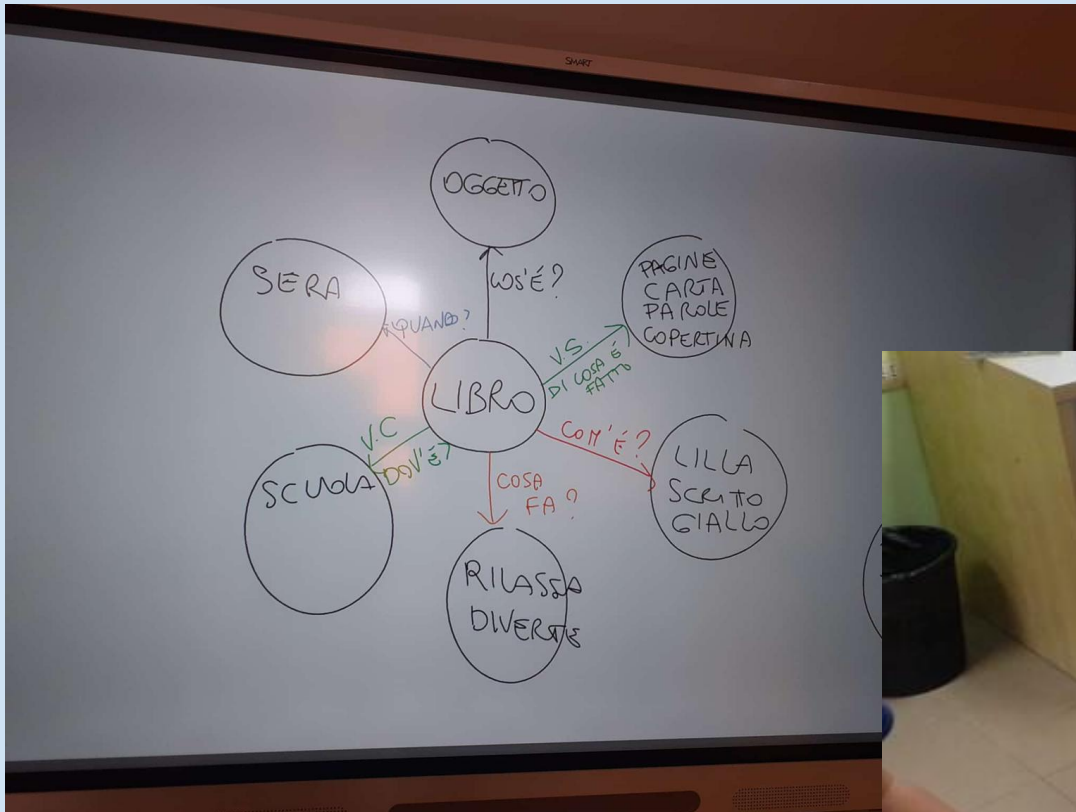 SMART
OGGETTO
COS'É?
SERA
QUANDO?
PAGINE
CARTA
PAROLE
COPERTINA
V.S.
DI COSA É
FATTO
LIBRO
V.C
DOV'É?
SCUOLA
COM'É?
LILLA
SCRITTO
GIALLO
COSA
FA?
RILASSA
DIVERTE